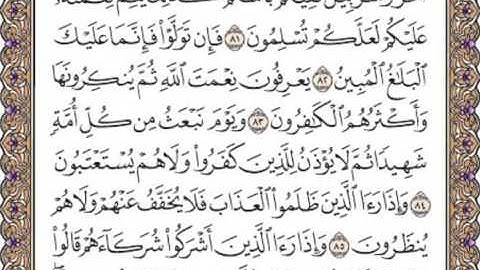 عَلَيْكُمْ لَعَلَّكُمْ تُسْلِمُونَ ٨١ فَإِن تَوَلَّوْاْ فَإِنَّمَا عَلَيْكَ
ٱلْبَلَٰغُ ٱلْمُبِينُ ٨٢ يَعْرِفُونَ نِعْمَتَ ٱللَّهِ ثُمَّ يُنكِرُونَهَا
وَأَكْثَرُهُمُ ٱلْكَٰفِرُونَ ٨٣ وَيَوْمَ نَبْعَثُ مِن كُلِّ أُمَّةٍ
شَهِيدًا ثُمَّ لَا يُؤْذَنُ لِلَّذِينَ كَفَرُواْ وَلَا هُمْ يُسْتَعْتَبُونَ
٨٤ وَإِذَا رَءَا ٱلَّذِينَ ظَلَمُواْ ٱلْعَذَابَ فَلَا يُخَفَّفُ عَنْهُمْ وَلَا هُمْ
يُنظَرُونَ ٨٥ وَإِذَا رَءَا ٱلَّذِينَ أَشْرَكُواْ شُرَكَآءَهُمْ قَالُواْ